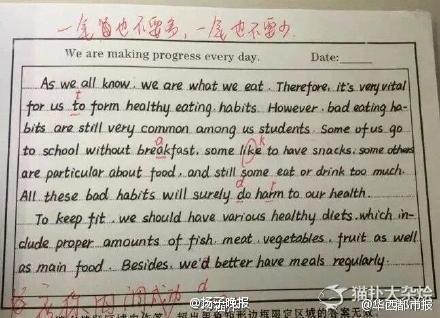 一笔画也不要多,一笔也不要少
We are making progress every day.
Date:
As we all know, we are what we eat. Therefore, it's very vital
t
for us to form healthy eating habits. However, bad eating ha-
bits are still very common among us students. Some of us go
a k
to school without breakfast, some like to have snacks, some others
are particular about food, and still some eat or drink too much.
d r
All these bad habits will surely do harm to our health.
To keep fit, we should have various healthy diets, which in-
clude proper amounts of fish, meat, vegetables, fruit as well
as main food. Besides, we'd better have meals regularly.
d
成功
@扬子晚报
猫扑大杂烩
@华西都市报